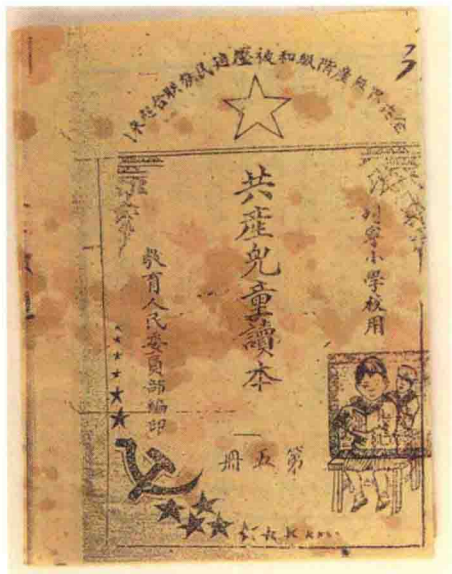 全世界無產階級和被壓迫民族聯合起來!
3
列寧小學校用
共産兒童讀本
第五冊
教育人民委員部編印